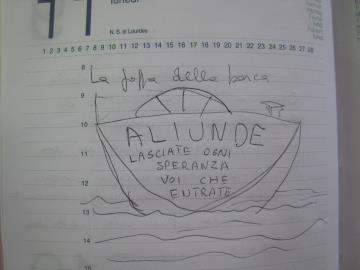 11
lunedì
N. S. di Lourdes
1 2 3 4 5 6 7 8 9 10 11 12 13 14 15 16 17 18 19 20 21 22 23 24 25 26 27 28
8
La della barca
9
10
ALIUNDE
LASCIATE OGNI
11
SPERANZA
12
VOI CHE
ENTRATE
13
14
15